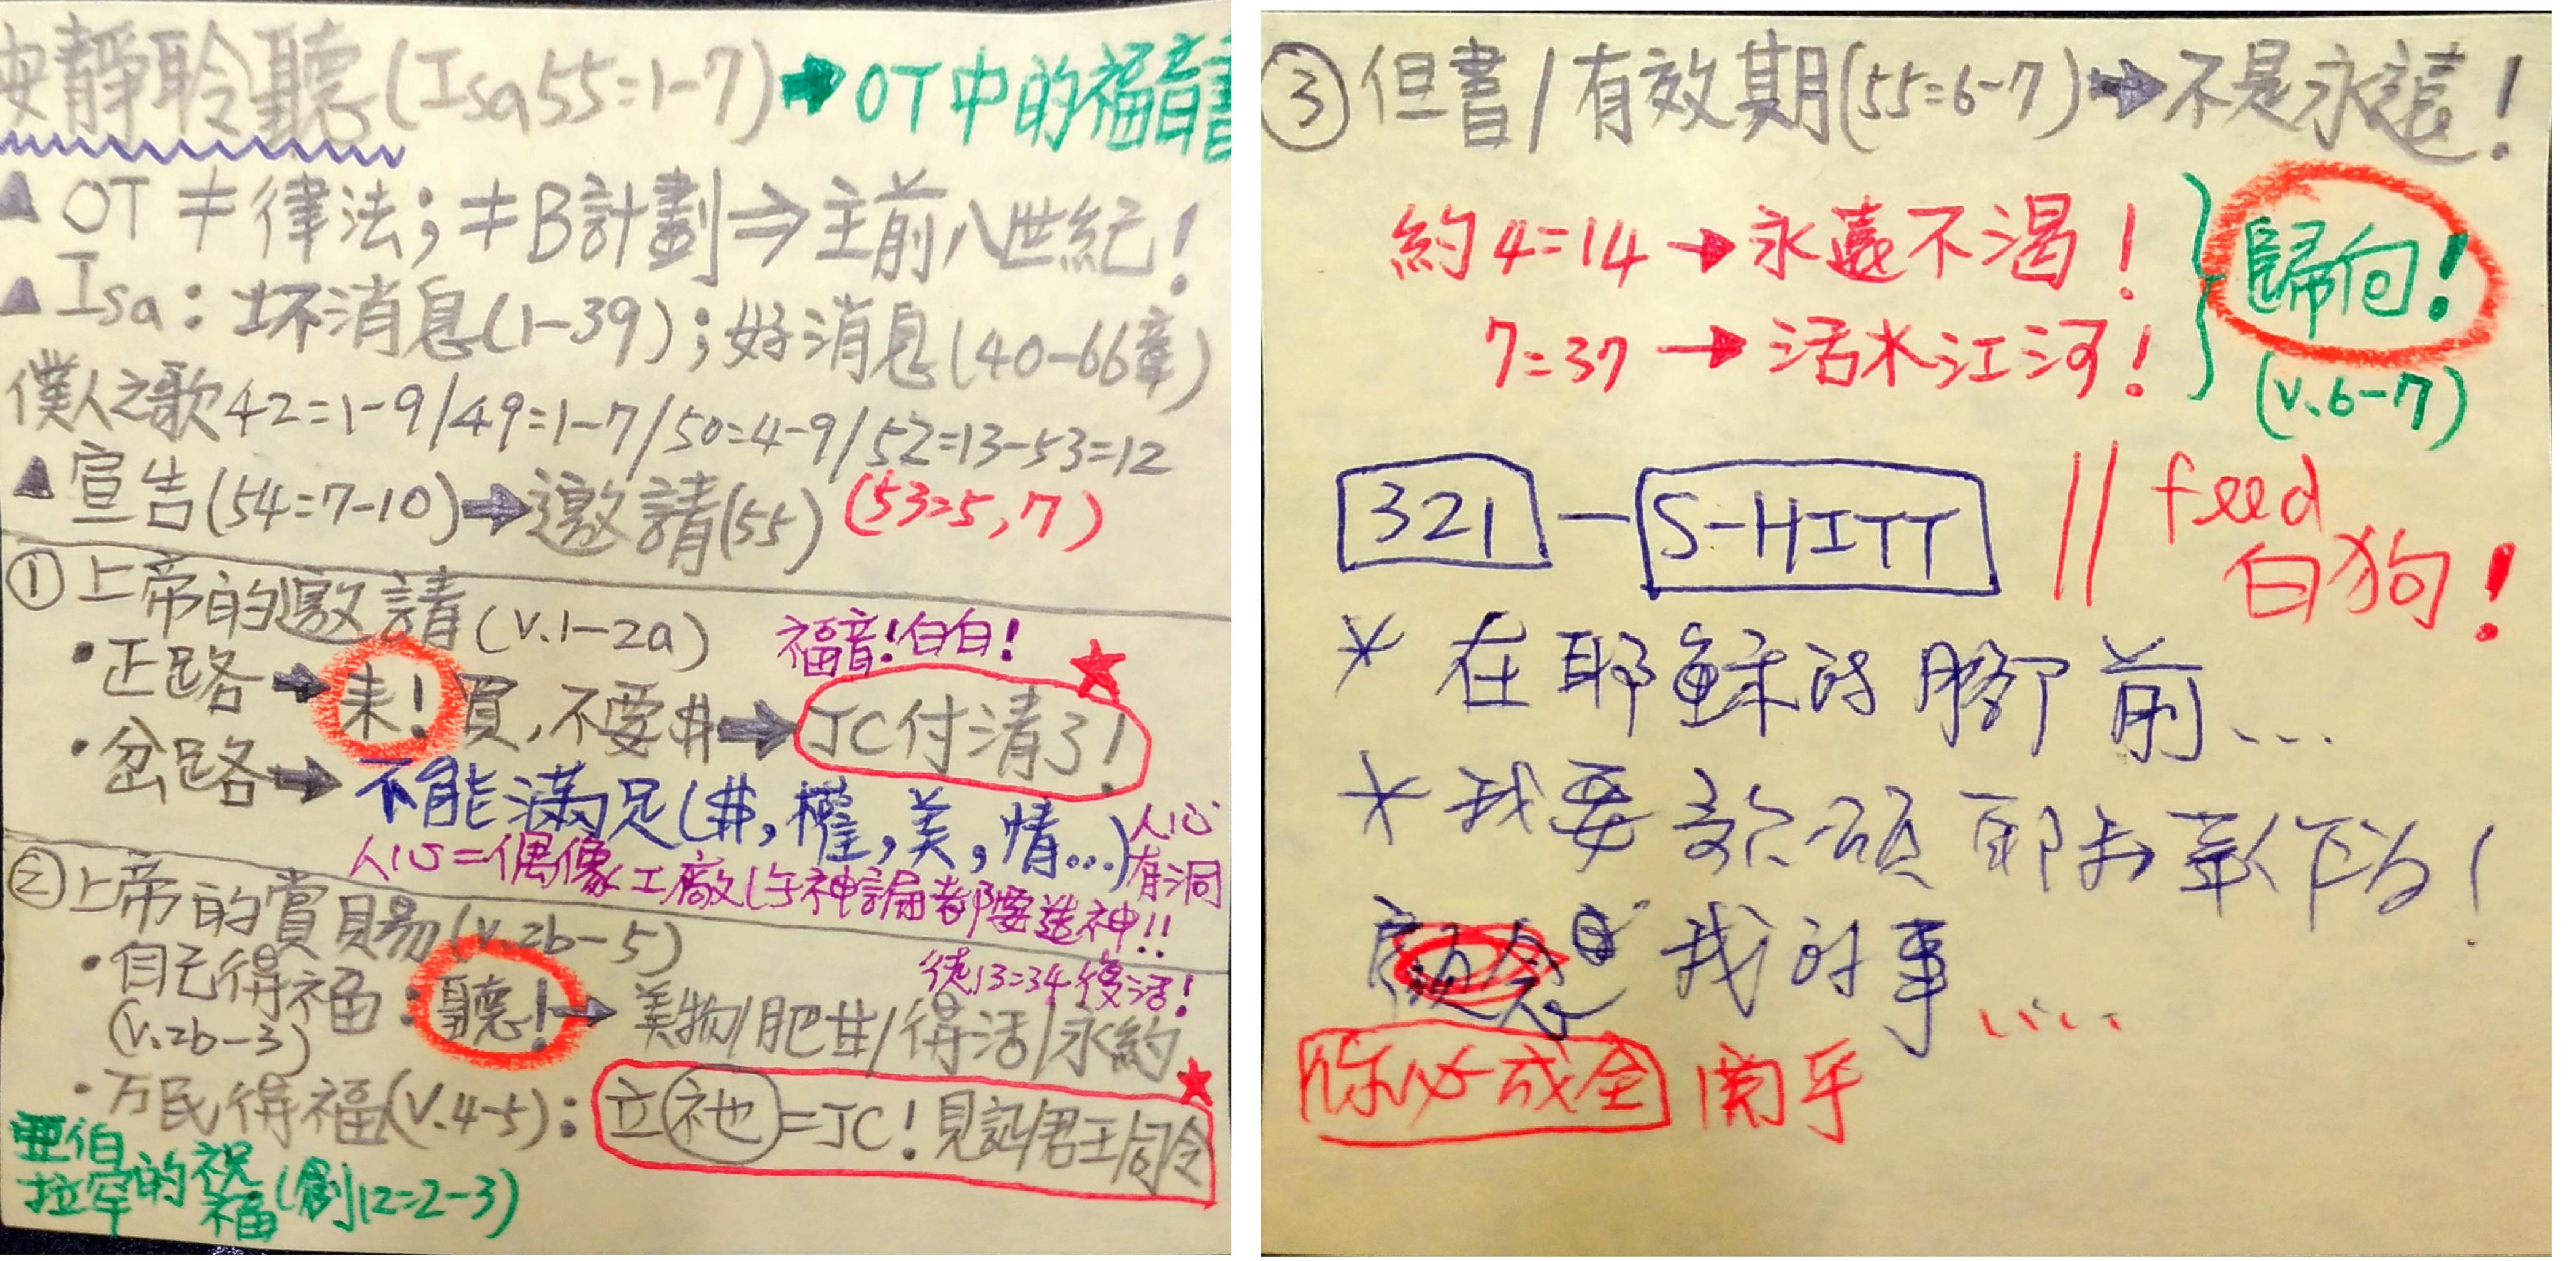 安靜聆聽(Isa55=1-7)➡OT中的福音書
▲OT≠律法；≠B計劃⇒主前八世紀！
▲Isa：坏消息(1-39)；好消息(40-66章)
僕人之歌42=1-9/49=1-7/50=4-9/52=13-53=12
▲宣告(54=7-10)➡邀請(55) (53=5,7)
①上帝的邀請(v.1-2a)
福音！白白！
•正路➡來！買,不要#➡JC付清了！
•岔路➡不能滿足(#,權,美,情...)人心有洞
人心=偶像工廠(無神論者都要造神!!
②上帝的賞賜(v.2b-5)
徒13=34復活！
•自己得福：聽！→美物/肥甘/得活/永約
(v.2b-3)
•万民得福(v.4-5)：立祂=JC！見証/君王/司令
亞伯拉罕的祝福(創12=2-3)
③但書/有效期(55=6-7)➡不是永遠！
約4=14→永遠不渴！
7=37→活水江河！
歸向！
(v.6-7)
321-S-HITT // feed
白狗！
*在耶穌的腳前...
*我要歌頌耶和華作為！
念 我的事......
你必成全 關乎